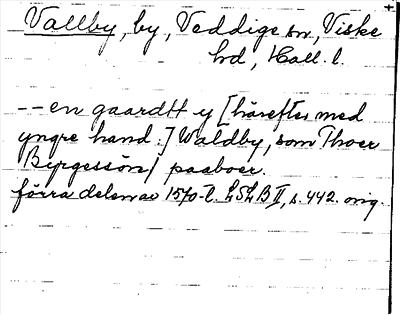 Vallby, by, Veddige sn, Viske
hd, Hall. l.
-- en gaardtt y [härefter med
yngre hand:] Waldby, som Thoer
Byrgessön/ paaboer.
förra delen av 1570-t. LSLB II, s. 442. orig.